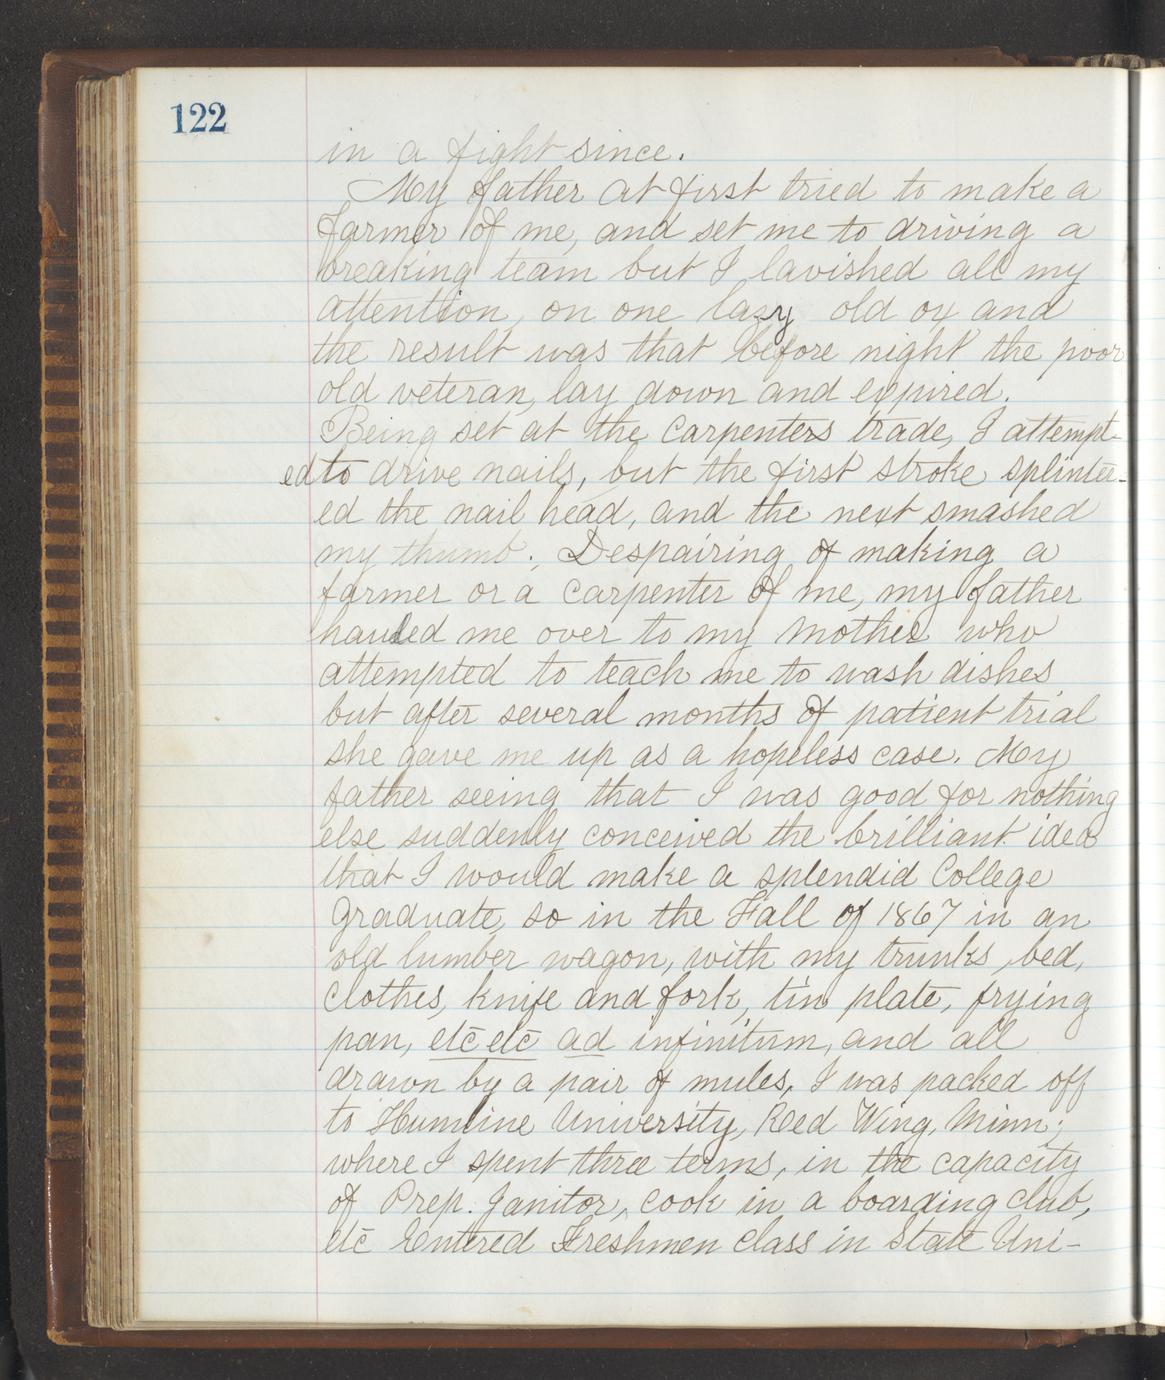 122
in a fight since.
My father at first tried to make a
farmer of me, and set me to driving a
breaking team but I lavished all my
attention, on one lazy old ox and
the result was that before night the poor
old veteran, lay down and expired.
Being set at the Carpenters trade, I attempt-
ed to drive nails, but the first stroke splinter-
ed the nail head, and the next smashed
my thumb. Despairing of making a
farmer or a carpenter of me, my father
handed me over to my Mother who
attempted to teach me to wash dishes
but after several months of patient trial
she gave me up as a hopeless case. My
father seeing that I was good for nothing
else suddenly conceived the brilliant idea
that I would make a splendid College
graduate, so in the Fall of 1867 in an
old lumber wagon, with my trunks, bed,
clothes, knife and fork, tin plate, frying
pan, etc etc ad infinitum, and all
drawn by a pair of mules, I was packed off
to Humline University, Red Wing, Minn;
where I spent three terms, in the capacity
of Prep. Janitor, cook in a boarding club,
etc Entered Freshmen Class in State Uni-